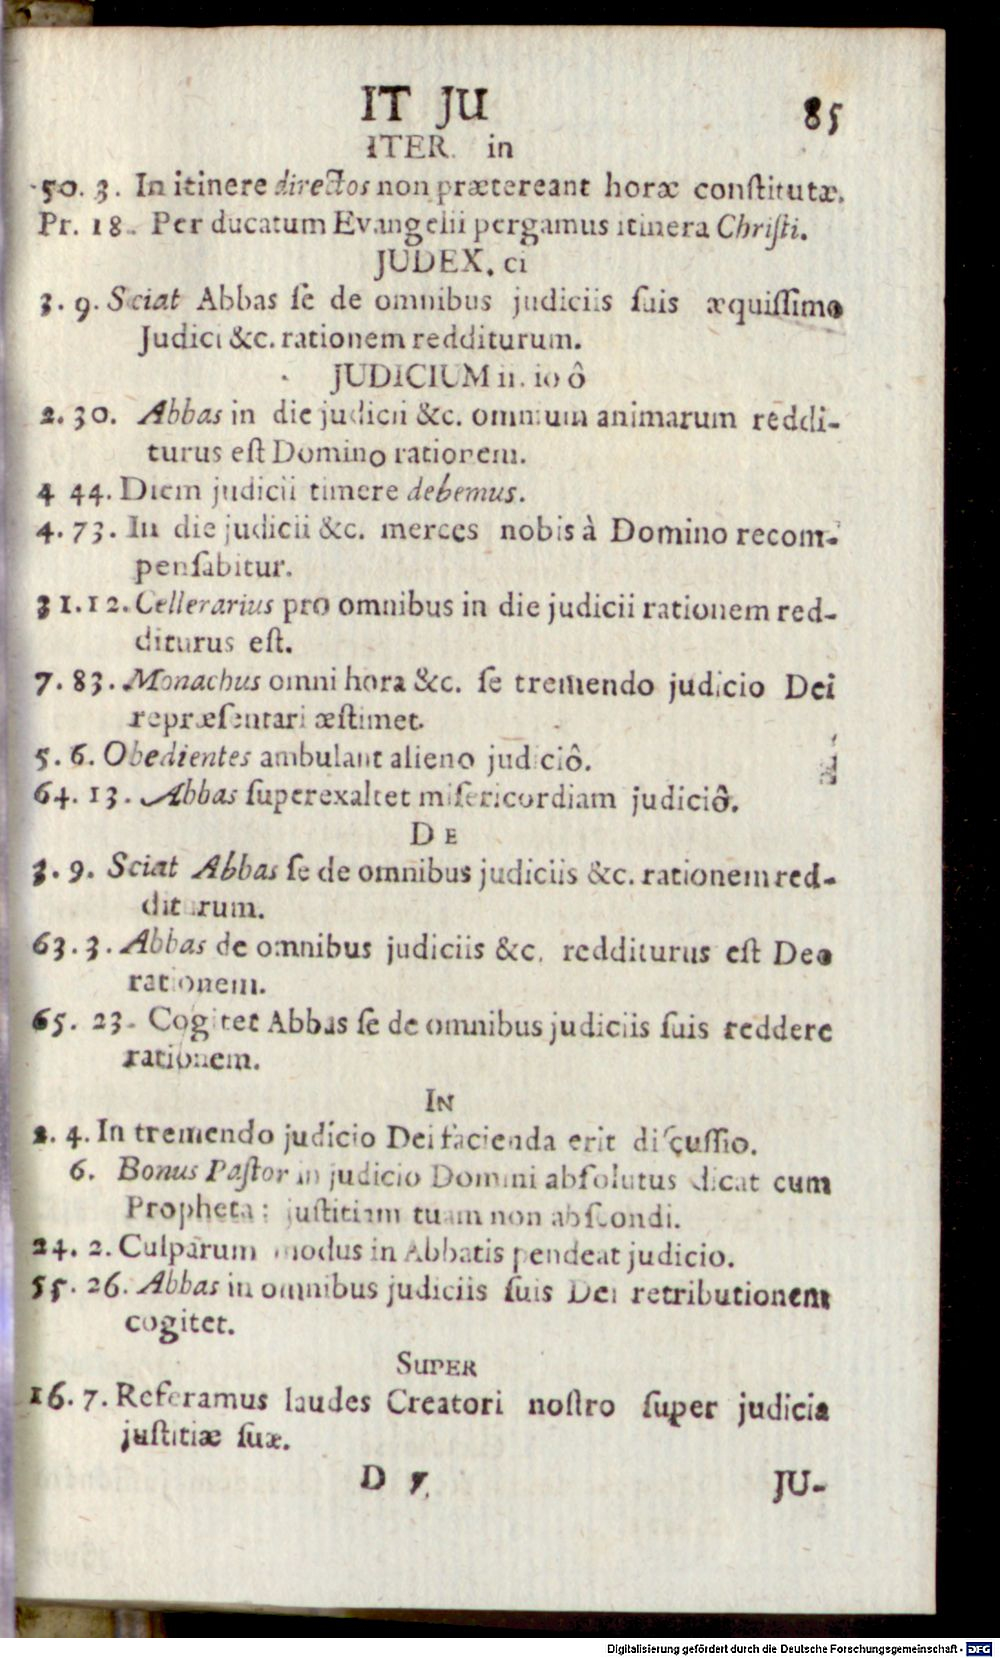 IT JU
85
ITER. in
50. 3. In itinere directos non prætereant horæ constitutæ.
Pr. 18. Per ducatum Evangelii pergamus itinera Christi.
JUDEX. ci
3. 9. Sciat Abbas ſe de omnibus judiciis ſuis æquiſſimo
Judici &c. rationem redditurum.
JUDICIUM ii. io ô
2. 30. Abbas in die judicii &c. omnium animarum reddi-
turus eſt Domino rationem.
4 44. Diem judicii timere debemus.
4. 73. In die judicii &c. merces nobis à Domino recom-
penſabitur.
31. 12. Cellerarius pro omnibus in die judicii rationem red-
diturus eſt.
7. 83. Monachus omni hora &c. ſe tremendo judicio Dei
repræſentari æſtimet.
5. 6. Obedientes ambulant alieno judiciô.
64. 13. Abbas ſuperexaltet miſericordiam judiciô.
DE
3. 9. Sciat Abbas ſe de omnibus judiciis &c. rationem red-
diturum.
63. 3. Abbas de omnibus judiciis &c. redditurus eſt Deo
rationem.
65. 23. Cogitet Abbas ſe de omnibus judiciis ſuis reddere
rationem.
IN
2. 4. In tremendo judicio Dei facienda erit diſcuſſio.
6. Bonus Paſtor in judicio Domini abſolutus dicat cum
Propheta: juſtitiam tuam non abſcondi.
24. 2. Culparum modus in Abbatis pendeat judicio.
55. 26. Abbas in omnibus judiciis ſuis Dei retributionem
cogitet.
SUPER
16. 7. Referamus laudes Creatori noſtro ſuper judicia
juſtitiæ ſuæ.
D 5
JU-
Digitalisierung gefördert durch die Deutsche Forschungsgemeinschaft - DFG